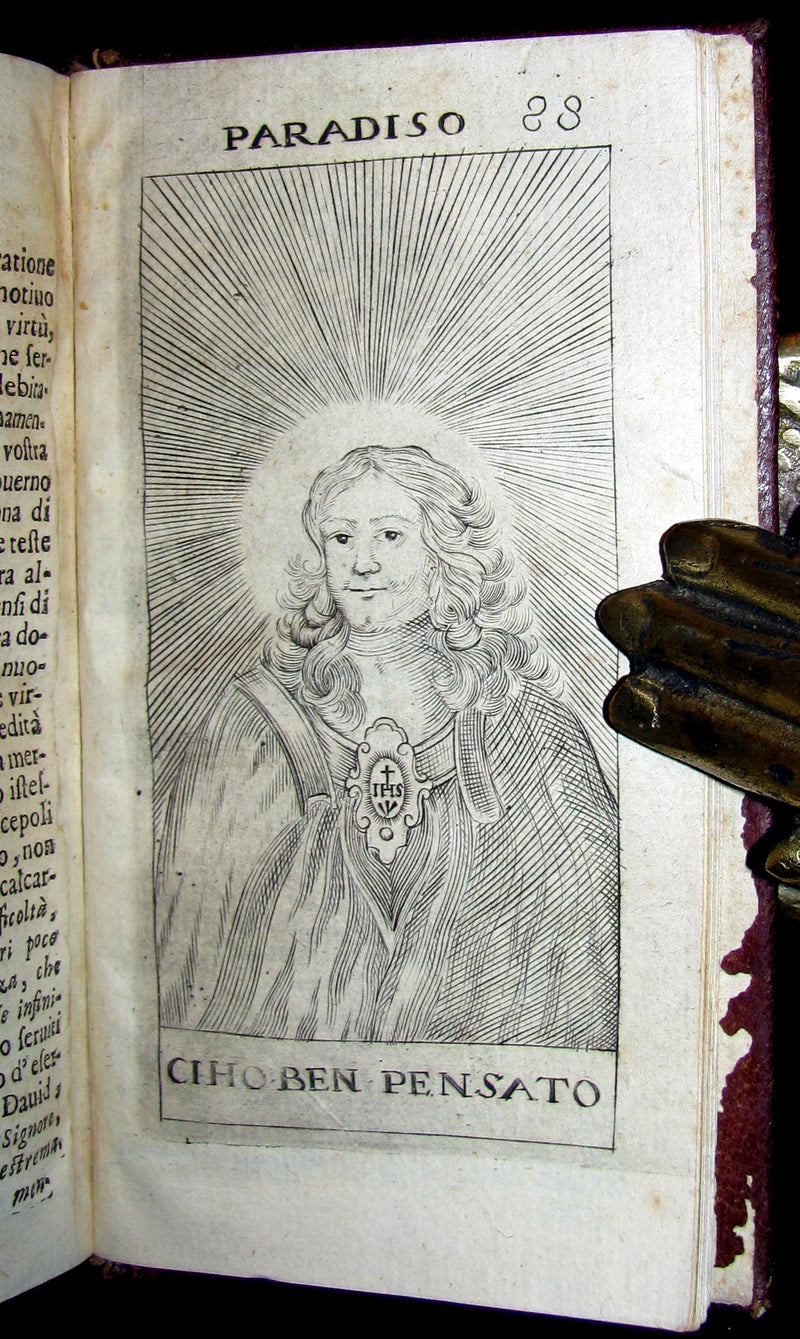 ratione
notiuo
virtù,
ne ſer-
debita-
namen-
voſtra
ouerno
ona di
e teſte
ra al-
nſi di
ra do-
nuo-
e vir-
edità
a mer-
o iſteſ-
cepoli
o, non
calcar-
ficoltà,
ri poco
za, che
e infini-
o ſeruiti
o d'eſer-
Dauid,
Signore,
eſtrema,
men-
PARADISO 88
IHS
CI HO BEN PENSATO